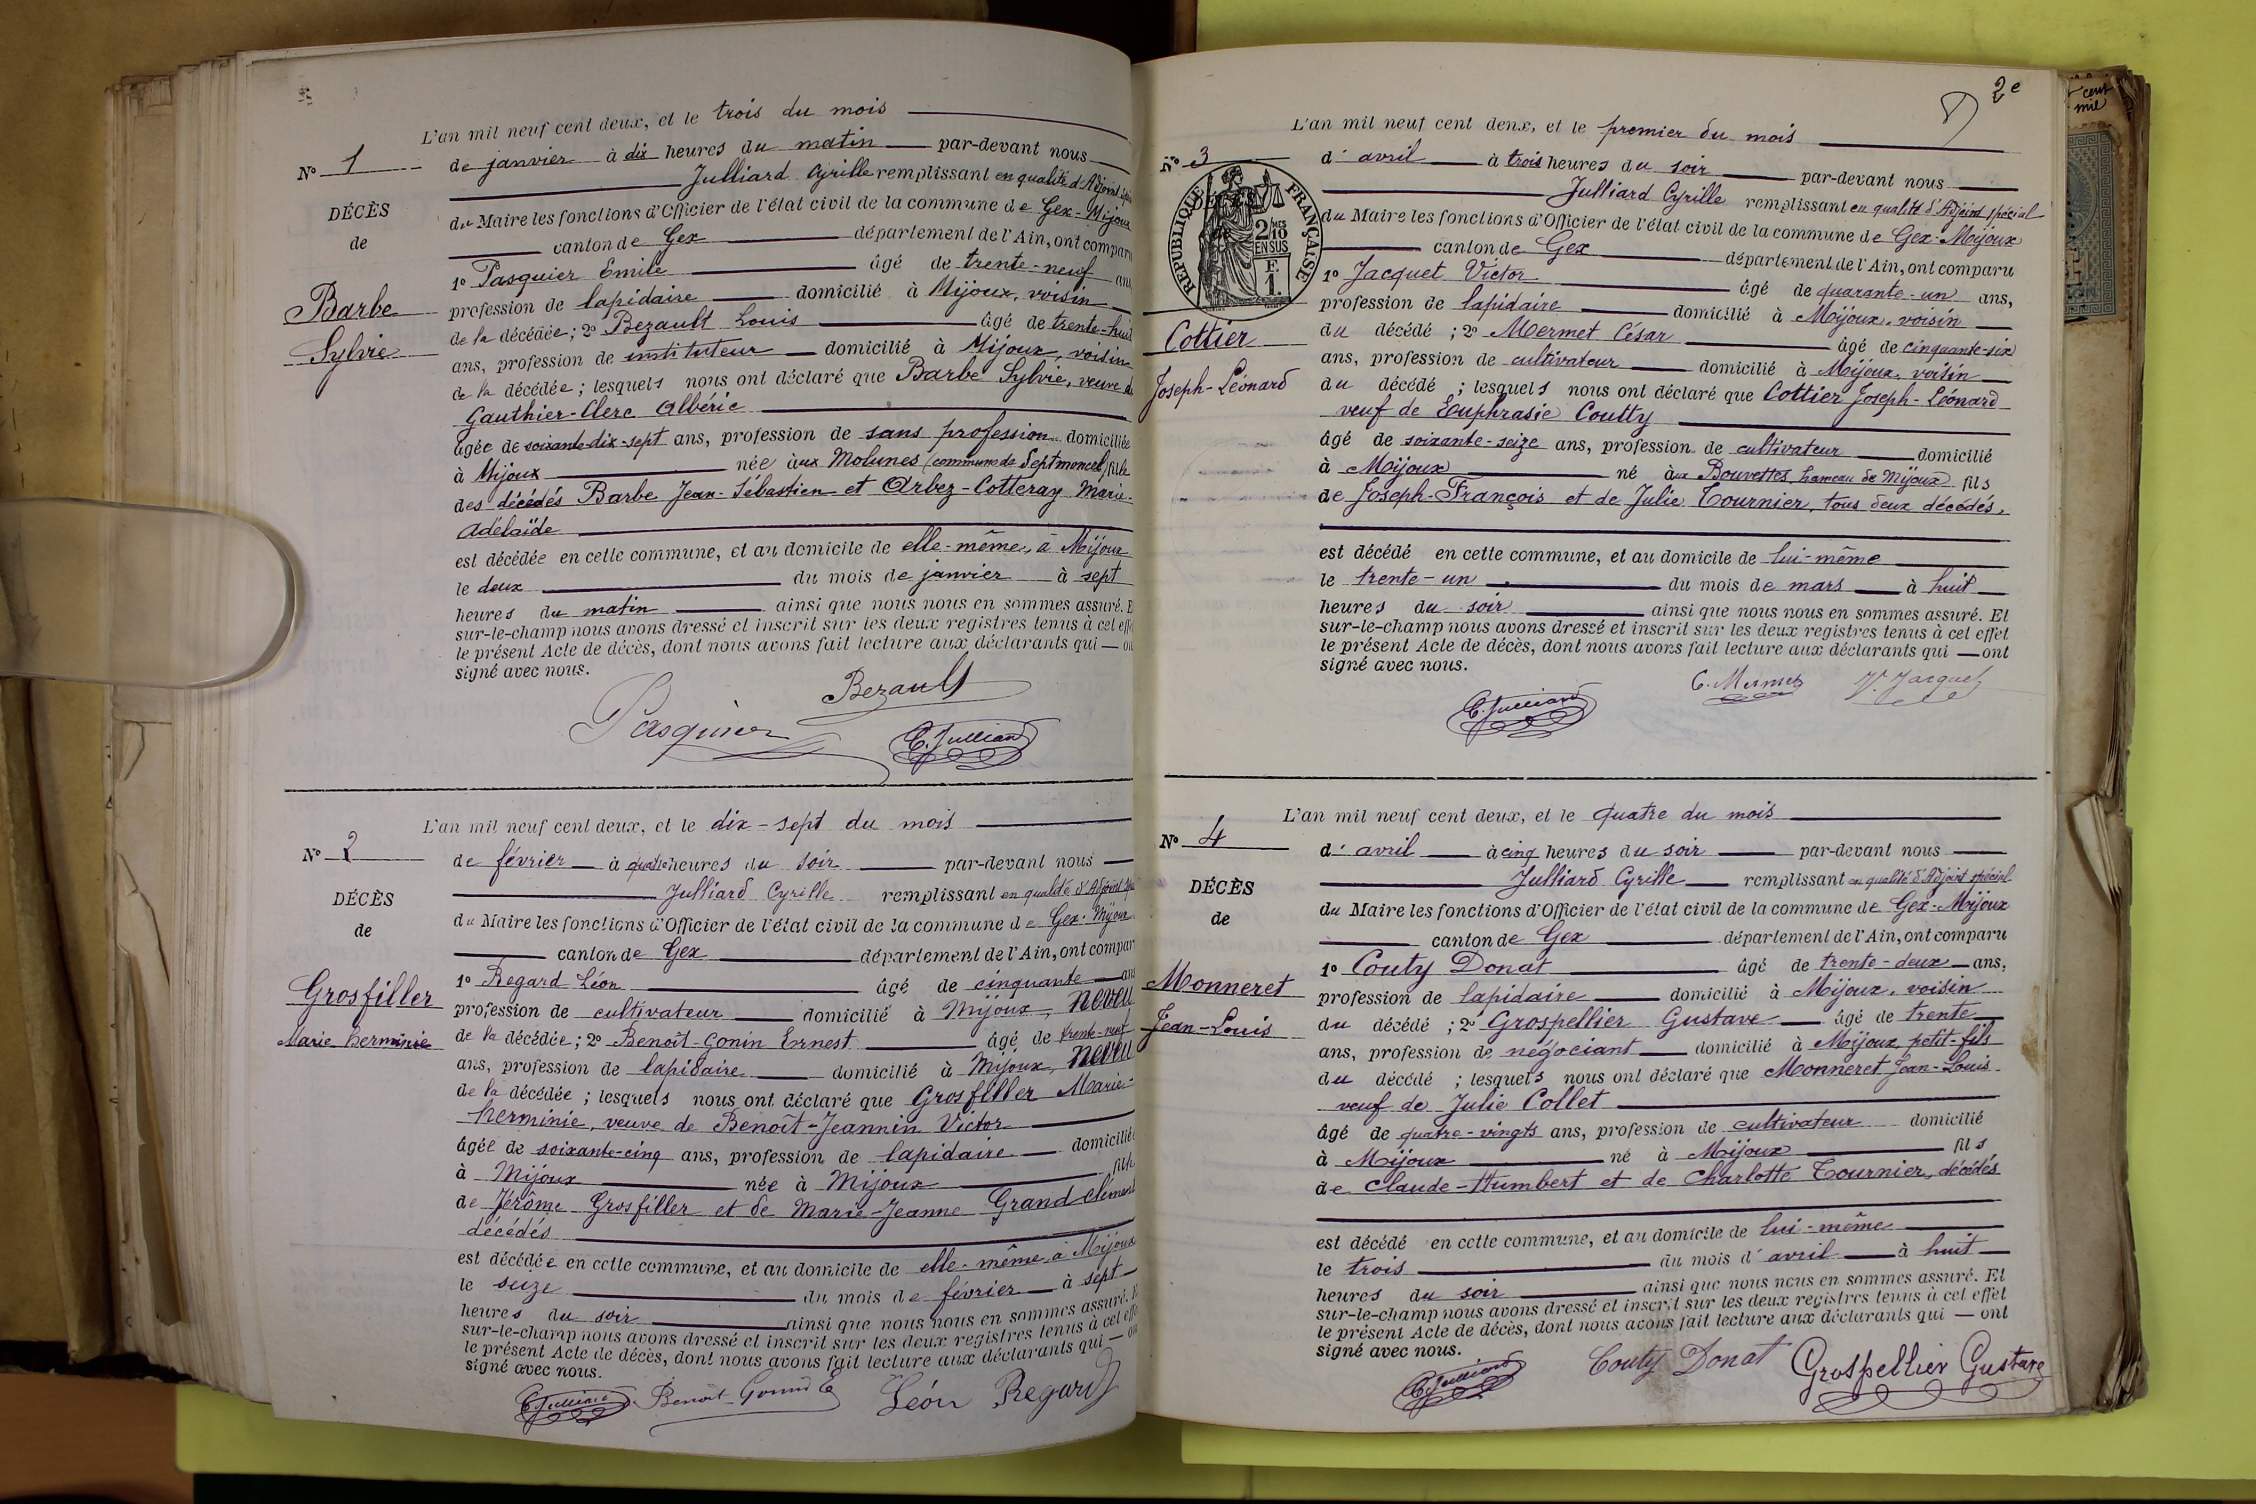 L'an mil neuf cent deux, et le trois du mois
N° 1
de janvier à dix heures du matin par-devant nous
Julliard Cyrille remplissant en qualité d'Adjoint
DÉCÈS
du Maire les fonctions d'Officier de l'état civil de la commune de Gex-Mijoux
de
canton de Gex département de l'Ain, ont comparu
1° Pasquier Emile âgé de trente-neuf ans
Barbe
profession de lapidaire domicilié à Mijoux, voisin
de la décédée; 2° Bezault Louis âgé de trente-huit
Sylvie
ans, profession de instituteur domicilié à Mijoux, voisin
de la décédée; lesquels nous ont déclaré que Barbe Sylvie, veuve de
Gauthier-Clerc Albéric
âgée de soixante-dix-sept ans, profession de sans profession domiciliée
à Mijoux née aux Molunes (commune de Septmoncel) fille
des décédés Barbe Jean-Sébastien et Arbez-Cotteray Marie-
Adélaïde
est décédée en cette commune, et au domicile de elle-même, à Mijoux
le deux du mois de janvier à sept
heures du matin ainsi que nous nous en sommes assuré. E
sur-le-champ nous avons dressé et inscrit sur les deux registres tenus à cet effe
le présent Acte de décès, dont nous avons fait lecture aux déclarants qui — on
signé avec nous.
Bezault
Pasquier
C. Julliard
L'an mil neuf cent deux, et le dix-sept du mois
N° 2
de février à quatre heures du soir par-devant nous
Julliard Cyrille remplissant en qualité d'Adjoint
DÉCÈS
du Maire les fonctions d'Officier de l'état civil de la commune de Gex-Mijoux
de
canton de Gex département de l'Ain, ont compar
1° Regard Léon âgé de cinquante ans
Grosfiller
profession de cultivateur domicilié à Mijoux, neveu
Marie herminie
de la décédée; 2° Benoît-Gonin Ernest âgé de trente-neuf
ans, profession de lapidaire domicilié à Mijoux, neveu
de la décédée; lesquels nous ont déclaré que Grosfiller Marie-
herminie, veuve de Benoît-Jeannin Victor
âgée de soixante-cinq ans, profession de lapidaire domiciliée
à Mijoux née à Mijoux fille
de Jérôme Grosfiller et de Marie-Jeanne Grandclément
décédés
est décédée en cette commune, et au domicile de elle-même à Mijoux
le seize du mois de février à sept
heures du soir ainsi que nous nous en sommes assuré. E
sur-le-champ nous avons dressé et inscrit sur les deux registres tenus à cet effe
le présent Acte de décès, dont nous avons fait lecture aux déclarants qui — on
signé avec nous.
C. Julliard Benoît Gonin E Léon Regard
2e
L'an mil neuf cent deux, et le premier du mois
N° 3
d'avril à trois heures du soir par-devant nous
Julliard Cyrille remplissant en qualité d'Adjoint spécial
RÉPUBLIQUE FRANÇAISE
2/10 EN SUS
F. 1.
du Maire les fonctions d'Officier de l'état civil de la commune de Gex-Mijoux
canton de Gex département de l'Ain, ont comparu
1° Jacquet Victor âgé de quarante-un ans,
profession de lapidaire domicilié à Mijoux, voisin
Cottier
du décédé; 2° Mermet César âgé de cinquante-six
ans, profession de cultivateur domicilié à Mijoux, voisin
Joseph-Léonard
du décédé; lesquels nous ont déclaré que Cottier Joseph-Léonard
veuf de Euphrasie Coutty
âgé de soixante-seize ans, profession de cultivateur domicilié
à Mijoux né aux Bouvettes hameau de Mijoux fils
de Joseph-François et de Julie Tournier, tous deux décédés,
est décédé en cette commune, et au domicile de lui-même
le trente-un du mois de mars à huit
heures du soir ainsi que nous nous en sommes assuré. Et
sur-le-champ nous avons dressé et inscrit sur les deux registres tenus à cet effet
le présent Acte de décès, dont nous avons fait lecture aux déclarants qui — ont
signé avec nous.
C. Mermet V. Jacquet
C. Julliard
L'an mil neuf cent deux, et le quatre du mois
N° 4
d'avril à cinq heures du soir par-devant nous
Julliard Cyrille remplissant en qualité d'Adjoint spécial
DÉCÈS
du Maire les fonctions d'Officier de l'état civil de la commune de Gex-Mijoux
de
canton de Gex département de l'Ain, ont comparu
1° Couty Donat âgé de trente-deux ans,
Monneret
profession de lapidaire domicilié à Mijoux, voisin
Jean-Louis
du décédé; 2° Grospellier Gustave âgé de trente
ans, profession de négociant domicilié à Mijoux petit-fils
du décédé; lesquels nous ont déclaré que Monneret Jean-Louis
veuf de Julie Collet
âgé de quatre-vingts ans, profession de cultivateur domicilié
à Mijoux né à Mijoux fils
de Claude-Humbert et de Charlotte Tournier, décédés
est décédé en cette commune, et au domicile de lui-même
le trois du mois d'avril à huit
heures du soir ainsi que nous nous en sommes assuré. Et
sur-le-champ nous avons dressé et inscrit sur les deux registres tenus à cet effet
le présent Acte de décès, dont nous avons fait lecture aux déclarants qui — ont
signé avec nous.
C. Julliard Couty Donat Grospellier Gustave
cent
mil